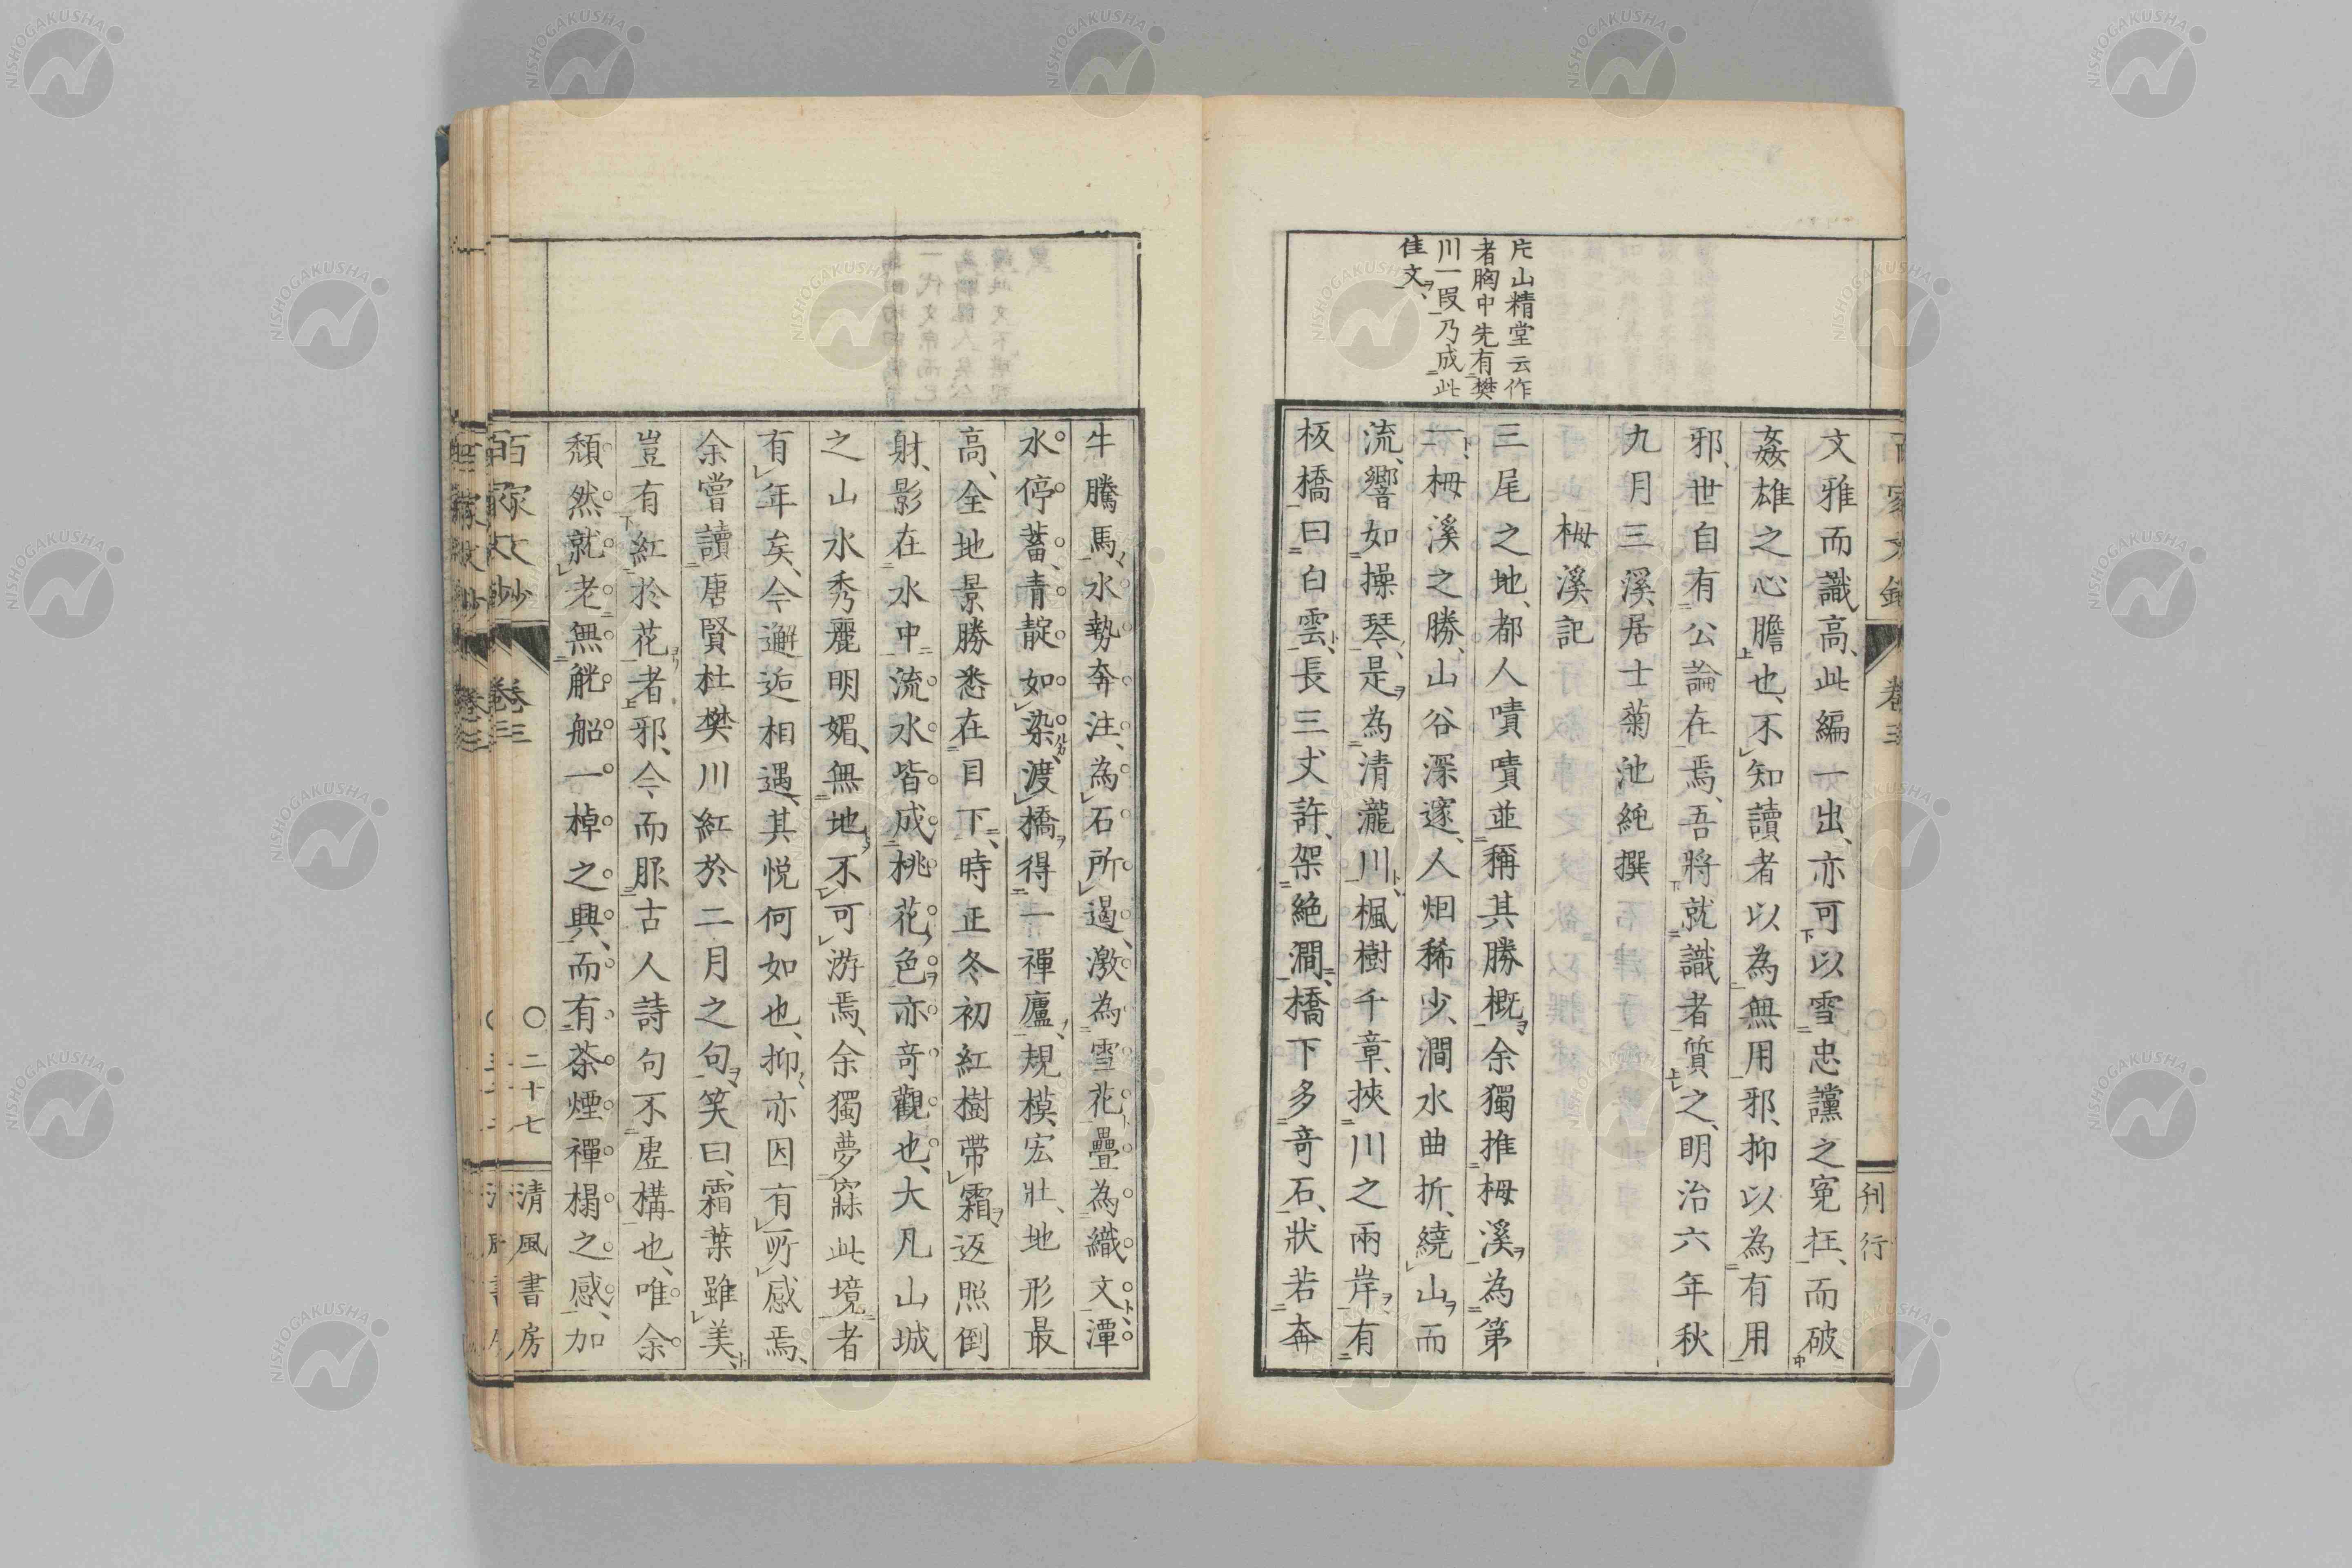 片山精堂云作
者胸中先有樊
川一段乃成此
佳文、
文雅而識高、此編一出、亦可以雪忠讜之冤枉、而破
姦雄之心膽也、不知讀者以為無用邪、抑以為有用
邪、世自有公論在焉、吾將就識者質之、明治六年秋
九月三溪居士菊池純撰
栂溪記
三尾之地、都人嘖嘖並稱其勝概、余獨推栂溪為第
一、栂溪之勝、山谷深邃、人烟稀少、澗水曲折、繞山而
流、響如操琴、是為清瀧川、楓樹千章、挾川之兩岸、有
板橋曰白雲、長三丈許、架絶澗、橋下多奇石、狀若奔
牛騰馬、水勢奔注、為石所遏、激為雪花、疊為織文、潭
水停蓄、青靛如染、渡橋得一禪廬、規模宏壯、地形最
高、全地景勝悉在目下、時正冬初紅樹帶霜、返照倒
射、影在水中、流水皆成桃花色、亦奇觀也、大凡山城
之山水秀麗明媚、無地不可游焉、余獨夢寐此境者
有年矣、今邂逅相遇、其悦何如也、抑亦因有所感焉、
余嘗讀唐賢杜樊川紅於二月之句、笑曰、霜葉雖美、
豈有紅於花者邪、今而服古人詩句不虚構也、唯余
頽然就老、無觥船一棹之興、而有茶煙禪榻之感、加
百家文鈔 卷三 〇二十七 清風書房
卷三
刊行